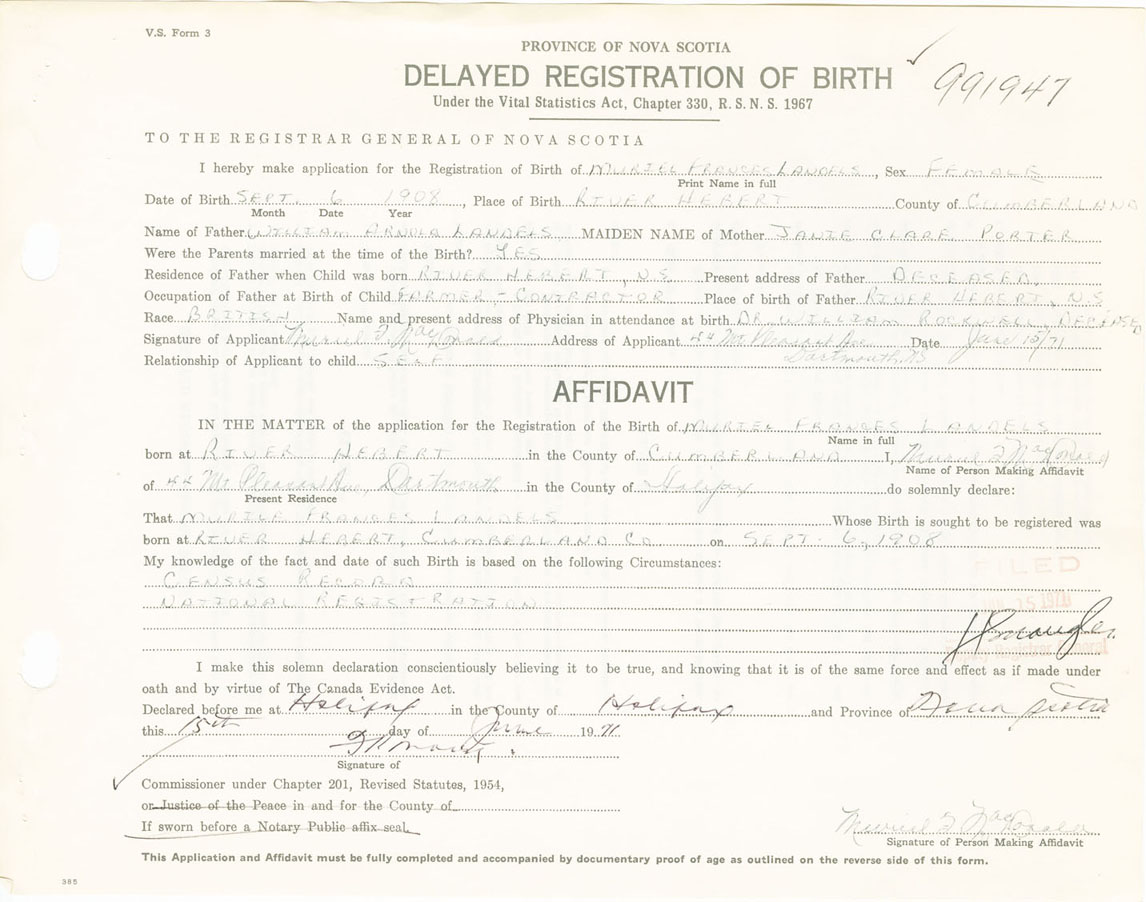 V.S. Form 3
PROVINCE OF NOVA SCOTIA
DELAYED REGISTRATION OF BIRTH 991947
Under the Vital Statistics Act, Chapter 330, R. S. N. S. 1967
TO THE REGISTRAR GENERAL OF NOVA SCOTIA
I hereby make application for the Registration of Birth of MURIEL FRANCES LANDELS, Sex FEMALE
Print Name in full
Date of Birth SEPT. 6 1908, Place of Birth RIVER HEBERT County of CUMBERLAND
Month Date Year
Name of Father WILLIAM ARNOLD LANDELS MAIDEN NAME of Mother JANIE CLARE PORTER
Were the Parents married at the time of the Birth? YES
Residence of Father when Child was born RIVER HEBERT, N.S. Present address of Father DECEASED.
Occupation of Father at Birth of Child FARMER - CONTRACTOR Place of birth of Father RIVER HEBERT, N.S
Race BRITISH Name and present address of Physician in attendance at birth DR. WILLIAM ROCKWELL,
Signature of Applicant Muriel F. MacDonald Address of Applicant 44 Mt. Pleasant Ave. Date June 15/71
Dartmouth, NS
Relationship of Applicant to child SELF
AFFIDAVIT
IN THE MATTER of the application for the Registration of the Birth of MURIEL FRANCES LANDELS
Name in full
born at RIVER HEBERT in the County of CUMBERLAND I, Muriel F MacDonald
Name of Person Making Affidavit
of 44 Mt Pleasant Ave, Dartmouth in the County of Halifax do solemnly declare:
Present Residence
That MURIEL FRANCES LANDELS Whose Birth is sought to be registered was
born at RIVER HEBERT, CUMBERLAND CO on SEPT. 6, 1908
My knowledge of the fact and date of such Birth is based on the following Circumstances:
CENSUS RECORD
FILED
NATIONAL REGISTRATION
15
Deputy Registrar General
I make this solemn declaration conscientiously believing it to be true, and knowing that it is of the same force and effect as if made under
oath and by virtue of The Canada Evidence Act.
Declared before me at Halifax in the County of Halifax and Province of Nova Scotia
this 15th day of June 1971
Signature of
Commissioner under Chapter 201, Revised Statutes, 1954,
or Justice of the Peace in and for the County of
If sworn before a Notary Public affix seal.
Muriel F MacDonald
Signature of Person Making Affidavit
This Application and Affidavit must be fully completed and accompanied by documentary proof of age as outlined on the reverse side of this form.
385